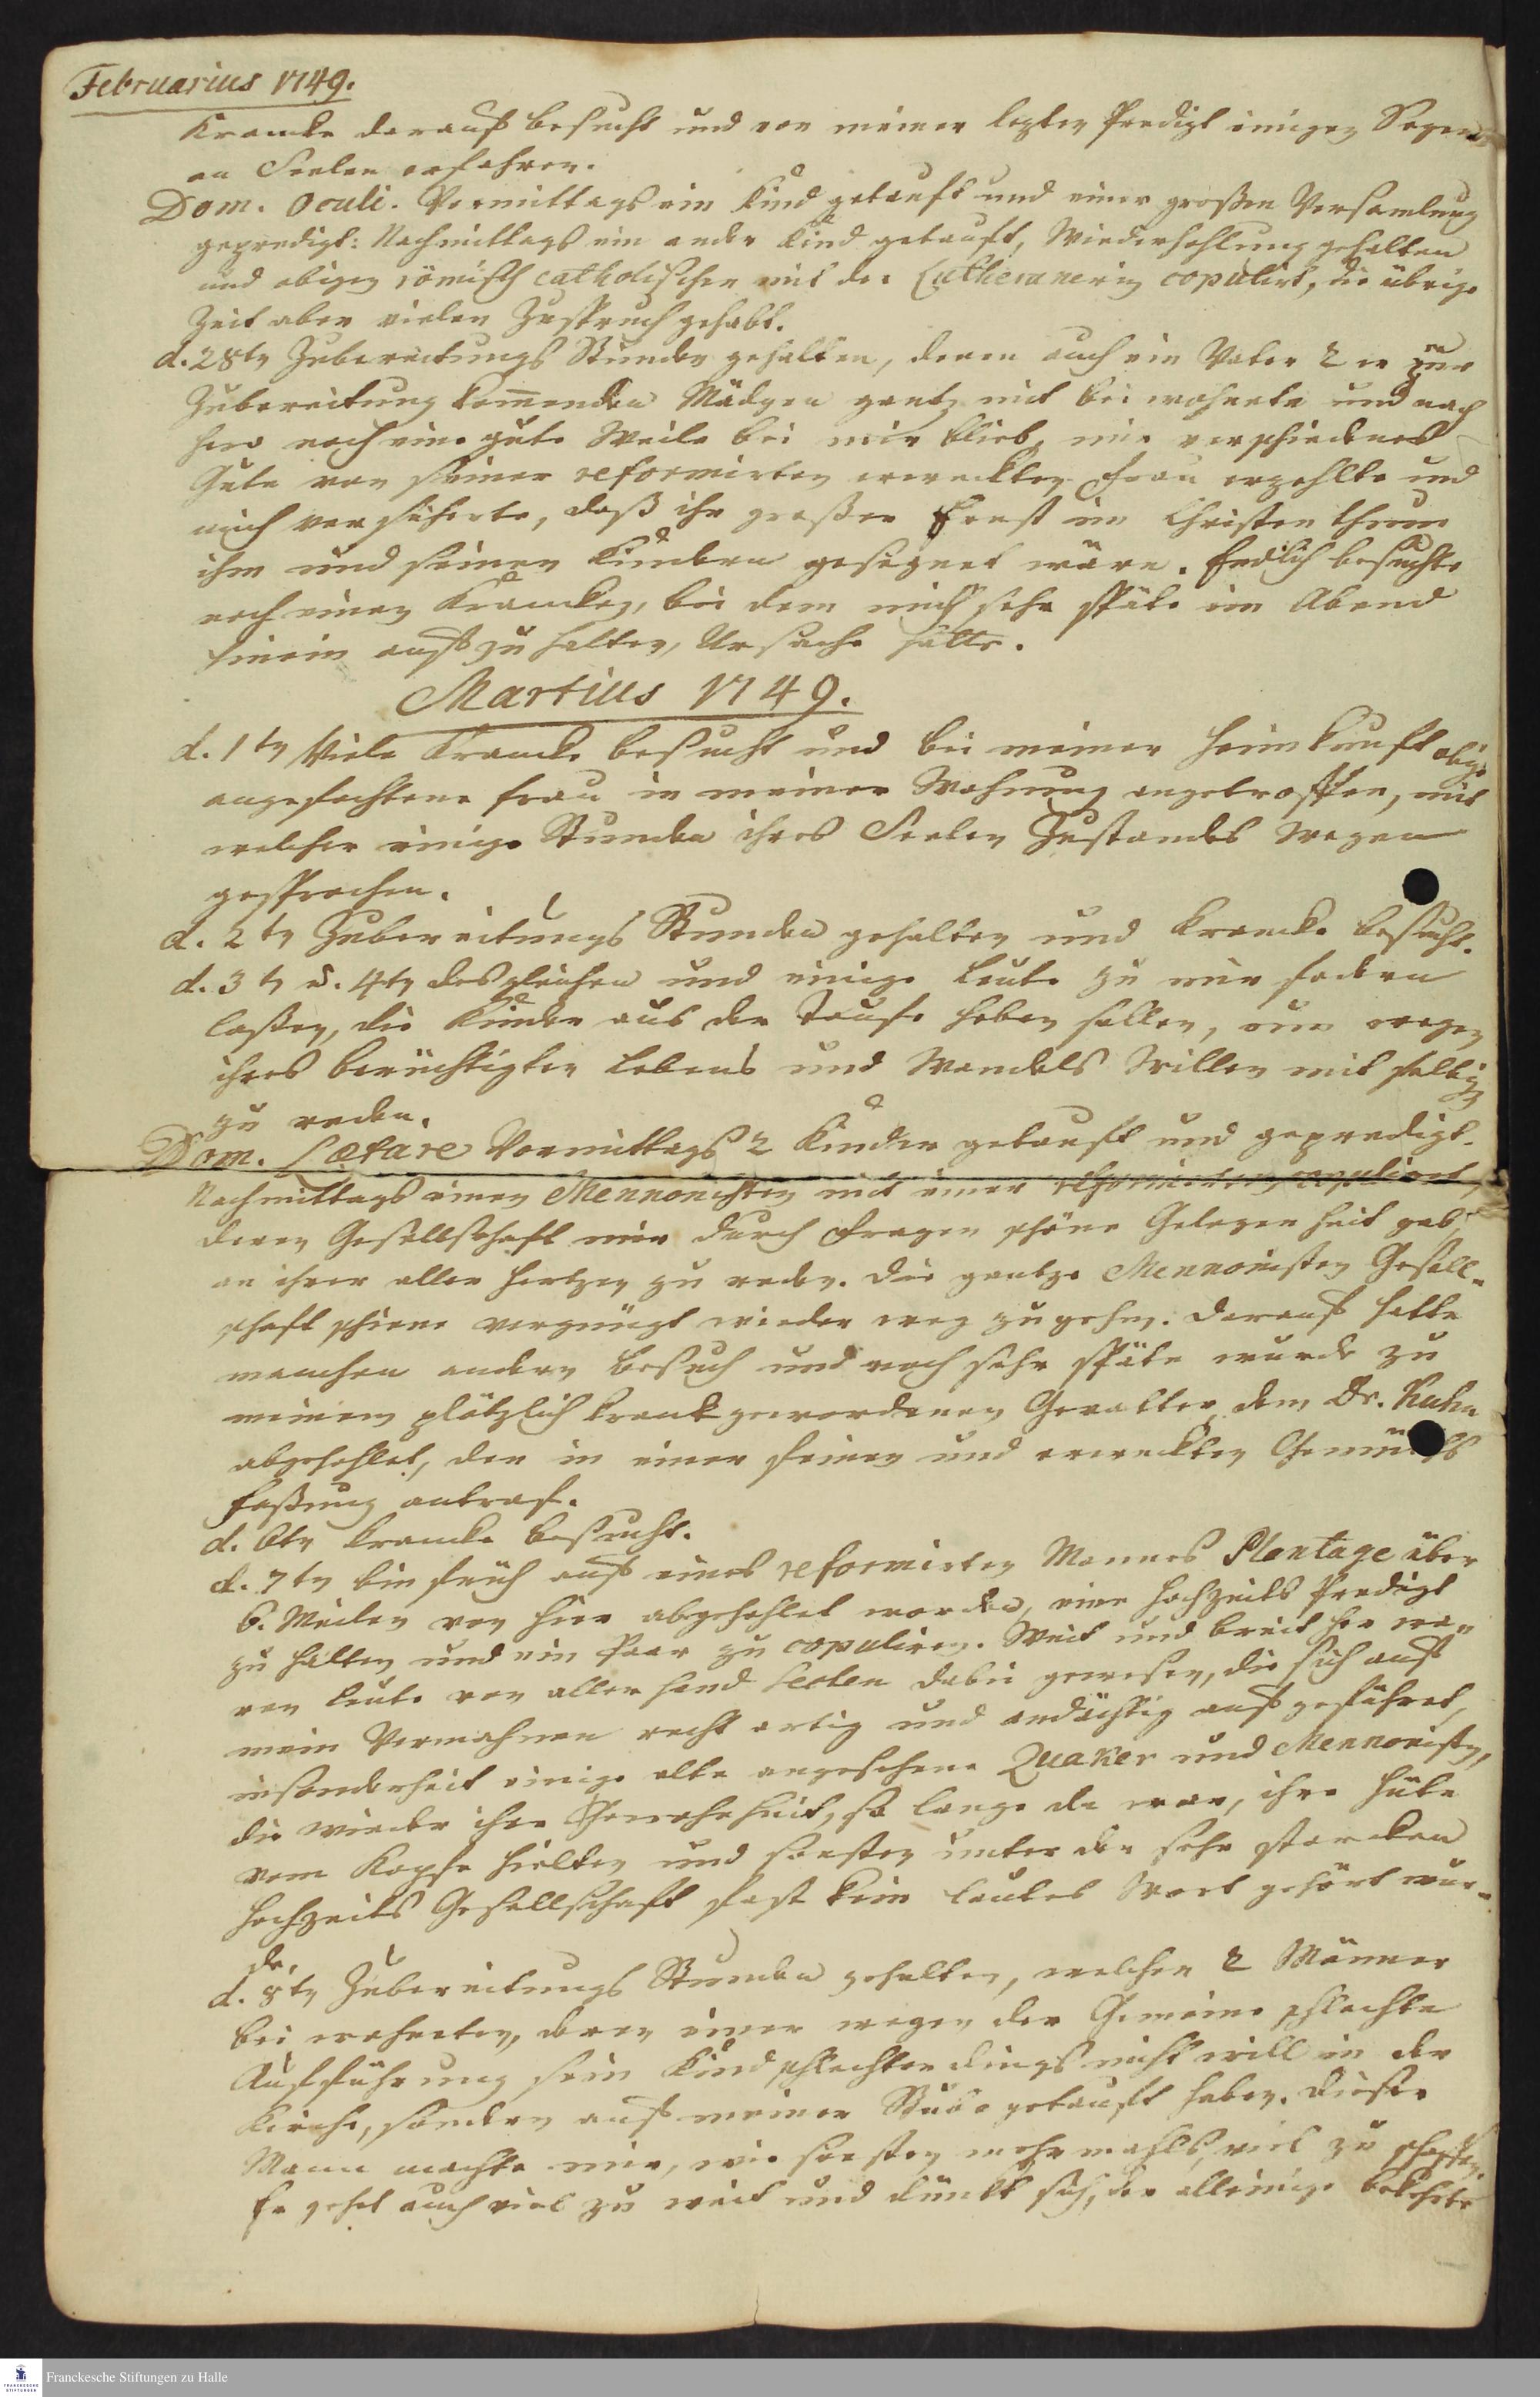 Februarius 1749.
Krancke darauf besucht und von meiner lezten Predigt einigen Segen
an Seelen erfahren.
Dom. Oculi. Vormittags ein Kind getauft und einer großen Versamlung
gepredigt: Nachmittags ein ander Kind getauft, Wiederhohlung gehalten
und obigen römisch catholischen mit der Lutheranerin copulirt, die übrige
Zeit aber vielen Zuspruch gehabt.
d. 28tn Zubereitungs Stunde gehalten, denen auch ein Vater 2er zur
Zubereitung kom̅enden Mädgen gantz mit bei wohnete und nach
hero noch eine gute Weile bei mir blieb, mir verschiedenes
Gute von seiner reformirten erweckten Frau erzehlte und
mich versicherte, daß ihr großer Ernst im Christenthum
ihm und seinen Kindern gesegnet wäre. Endlich besuchte
noch einen Krancken, bei dem mich sehr späte im Abend
hinein aufzuhalten, Ursache hatte.
Martius 1749.
d. 1tn Viele Krancke besucht und bei meiner Heimkunft obige
angefochtene Frau in meiner Wohnung angetroffen, mit
welcher einige Stunden ihres Seelen Zustandes wegen
gesprochen.
d. 2tn Zubereitungs Stunden gehalten und Krancke besucht.
d. 3tn u. 4tn desgleichen und einige Leute zu mir fodern
laßen, die Kinder aus der Taufe heben sollen, um wegen
ihres berüchtigten Lebens und Wandels Willen mit selbigen
zu reden.
Dom. Lætare Vormittags 2 Kinder getauft und gepredigt.
Nachmittags einen Mennonisten mit einer reformirten copulirt,
deren Gesellschaft mir durch Fragen schöne Gelegenheit gab,
an ihrer aller Hertzen zu reden. Die gantze Mennonisten Gesell-
schaft schiene vergnügt wieder weg zu gehn. Darauf hatte
manchen andern Besuch und noch sehr späte wurde zu
meinem plötzlich kranck gewordenen Gevatter, dem Dr. Kuhn
abgehohlet, den in einer feinen und erweckten Gemüths
Faßung antraf.
d. 6tn Krancke besucht.
d. 7tn bin früh auf eines reformirten Mannes Plantage über
6. Meilen von hier abgehohlet worden, eine Hochzeits Predigt
zu halten und ein Paar zu copuliren. Weit und breit her wa-
ren Leute von allerhand Secten dabei gewesen, die sich auf
mein Vermahnen recht artig und andächtig aufgeführet,
insonderheit einige alte angesehene Quaker und Mennonisten,
die wieder ihre Gewohnheit, so lange da war, ihre Hüte
vom Kopfe hielten und sonsten unter der sehr starcken
Hochzeits Gesellschaft fast kein lautes Wort gehört wur-
de.
d. 8tn Zubereitungs Stunden gehalten, welchen 2 Männer
bei wohneten, deren einer wegen der Gemeine schlechte
Aufführung sein Kind schlechterdings nicht will in der
Kirche, sondern auf meiner Stube getauft haben. Dieser
Mann machte mir, wie sonsten mehrmahls, viel zu schaffen.
Er gehet auch viel zu weit und dünckt sich, der alleinige bekehrte
Franckesche Stiftungen zu Halle